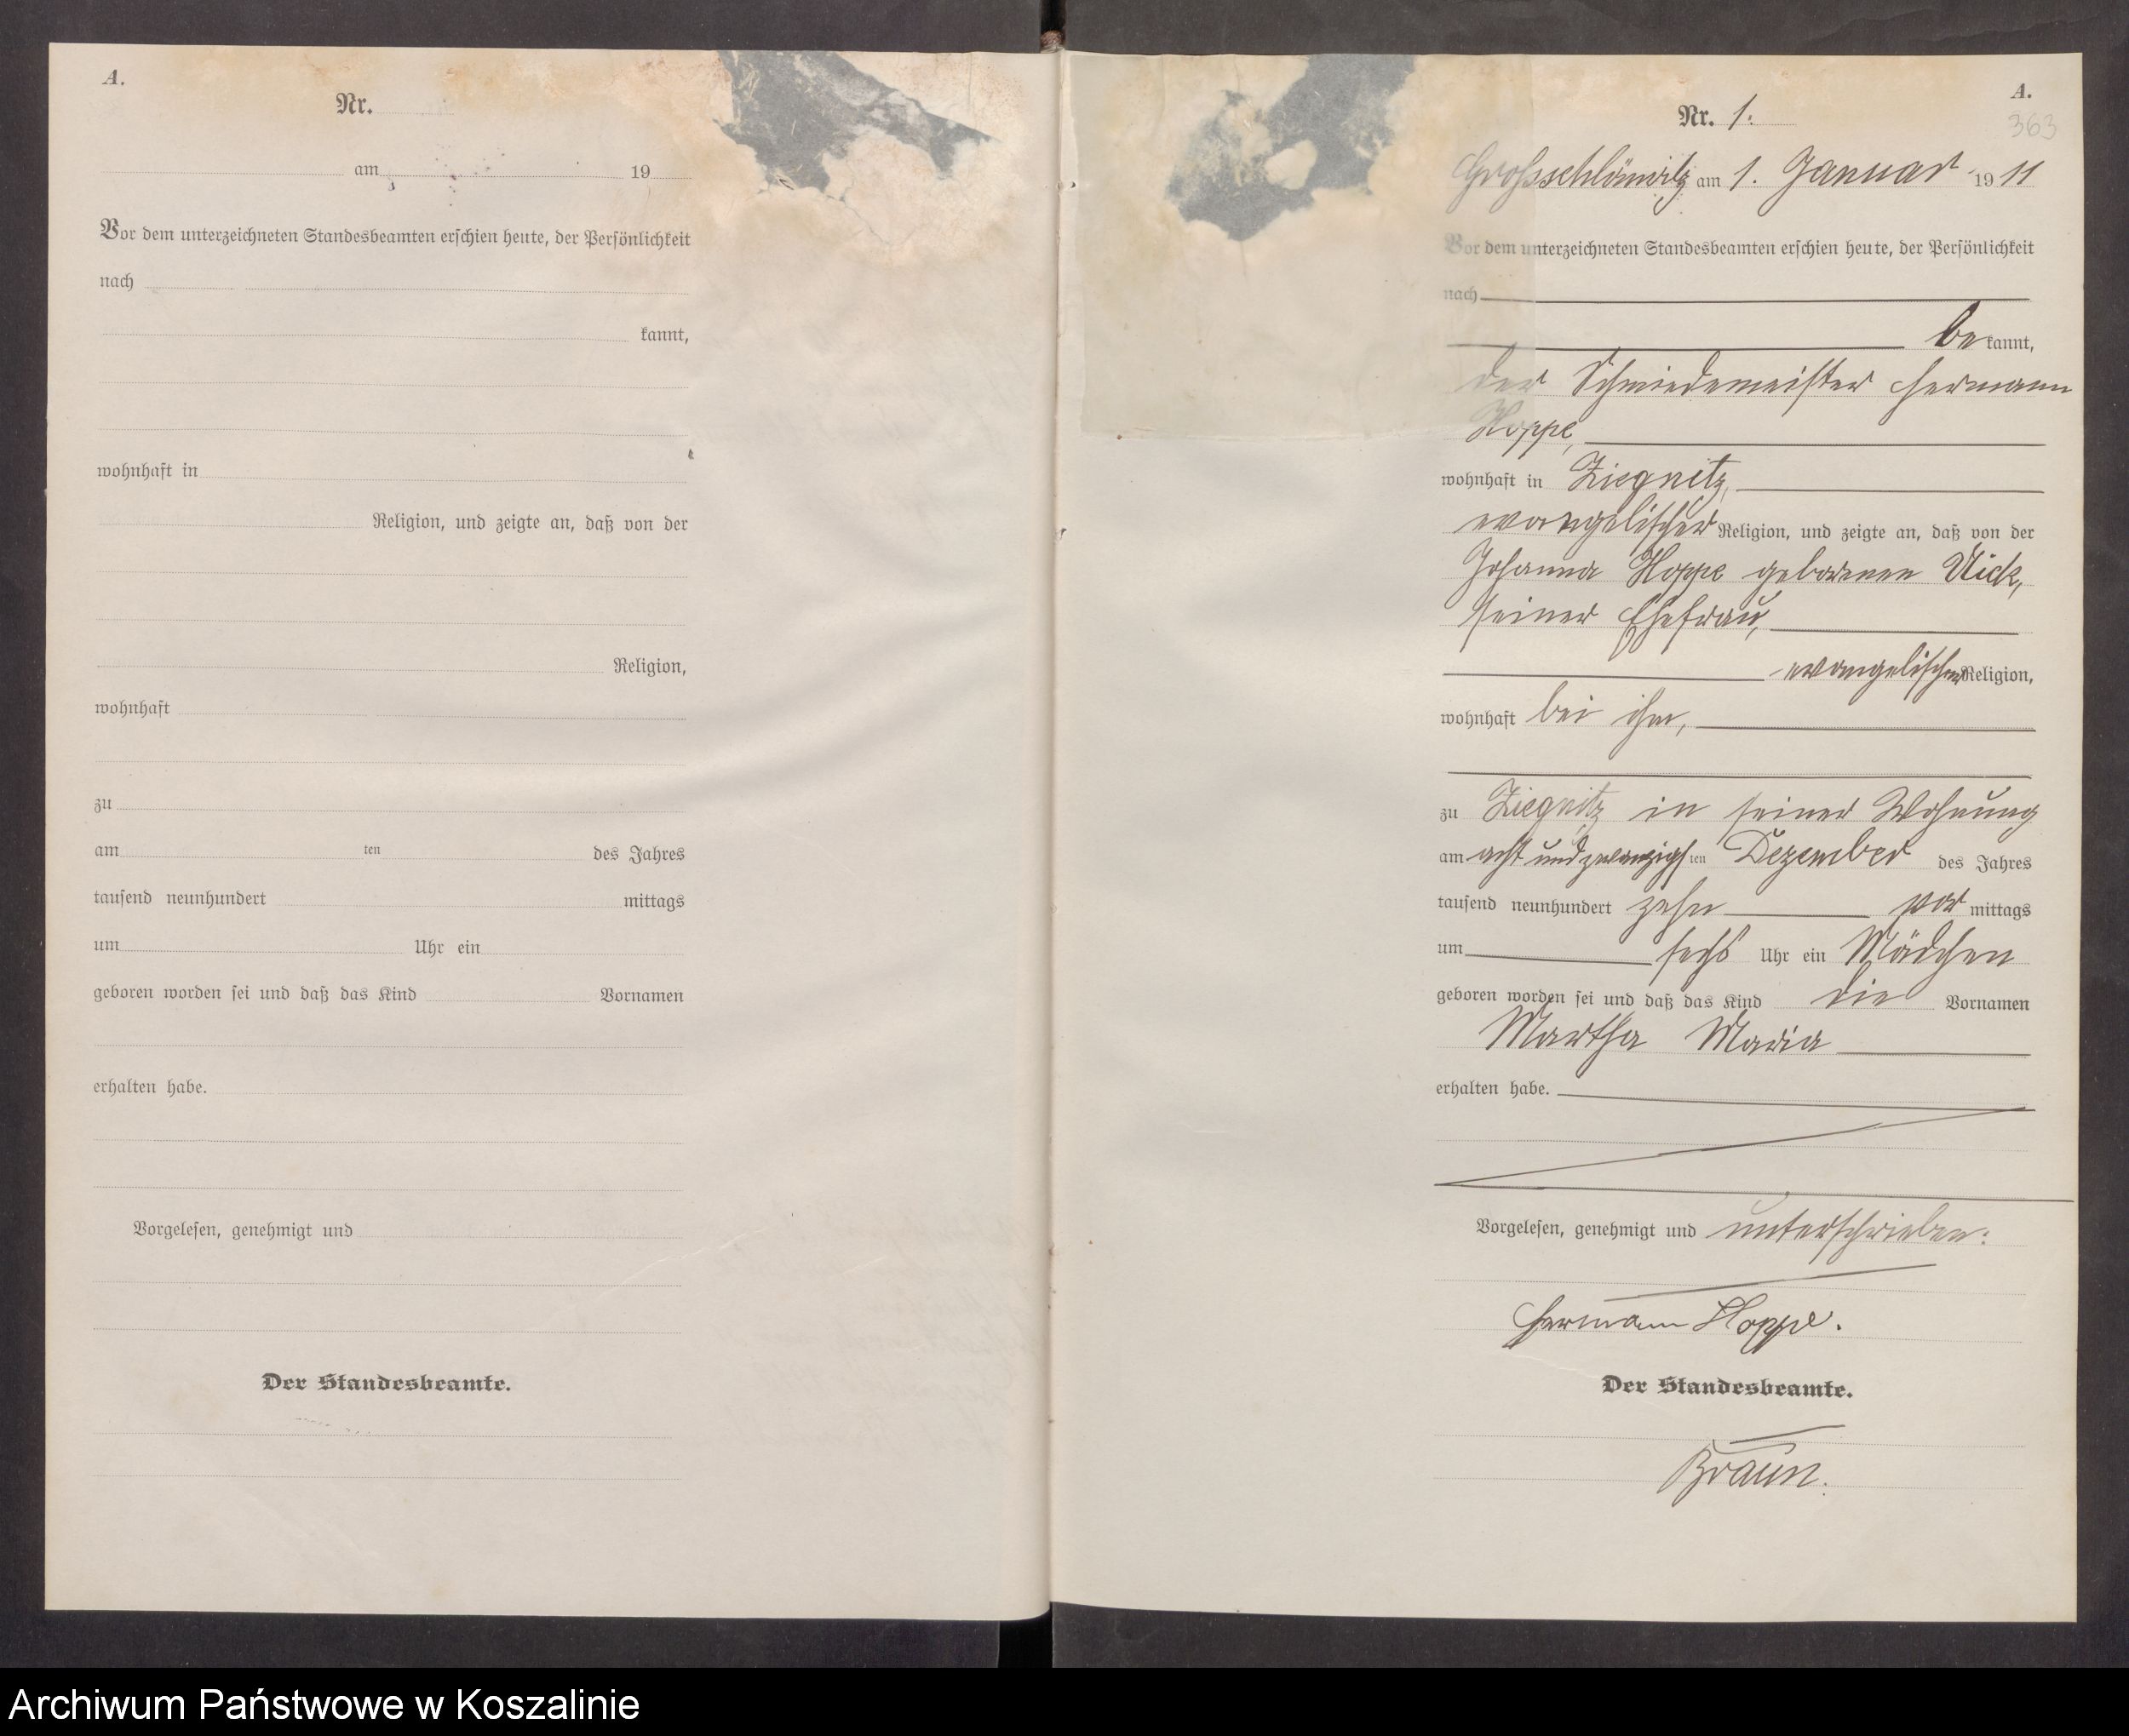 A.
Nr.
am 19
Vor dem unterzeichneten Standesbeamten erschien heute, der Persönlichkeit
nach
kannt,
wohnhaft in
Religion, und zeigte an, daß von der
Religion,
wohnhaft
zu
am ten des Jahres
tausend neunhundert mittags
um Uhr ein
geboren worden sei und daß das Kind Vornamen
erhalten habe.
Vorgelesen, genehmigt und
Der Standesbeamte.
A.
Nr. 1.
363
Großschlönwitz am 1. Januar 1911
Vor dem unterzeichneten Standesbeamten erschien heute, der Persönlichkeit
nach
bekannt,
der Schmiedemeister Hermann
Hoppe,
wohnhaft in Ziegnitz,
evangelischer Religion, und zeigte an, daß von der
Johanna Hoppe geborenen
seiner Ehefrau,
evangelischer Religion,
wohnhaft bei ihm,
zu Ziegnitz in seiner Wohnung
am acht und zwanzigsten Dezember des Jahres
tausend neunhundert zehn vormittags
um sechs Uhr ein Mädchen
geboren worden sei und daß das Kind die Vornamen
Martha Maria
erhalten habe.
Vorgelesen, genehmigt und unterschrieben:
Hermann Hoppe.
Der Standesbeamte.
Braun.
Archiwum Państwowe w Koszalinie